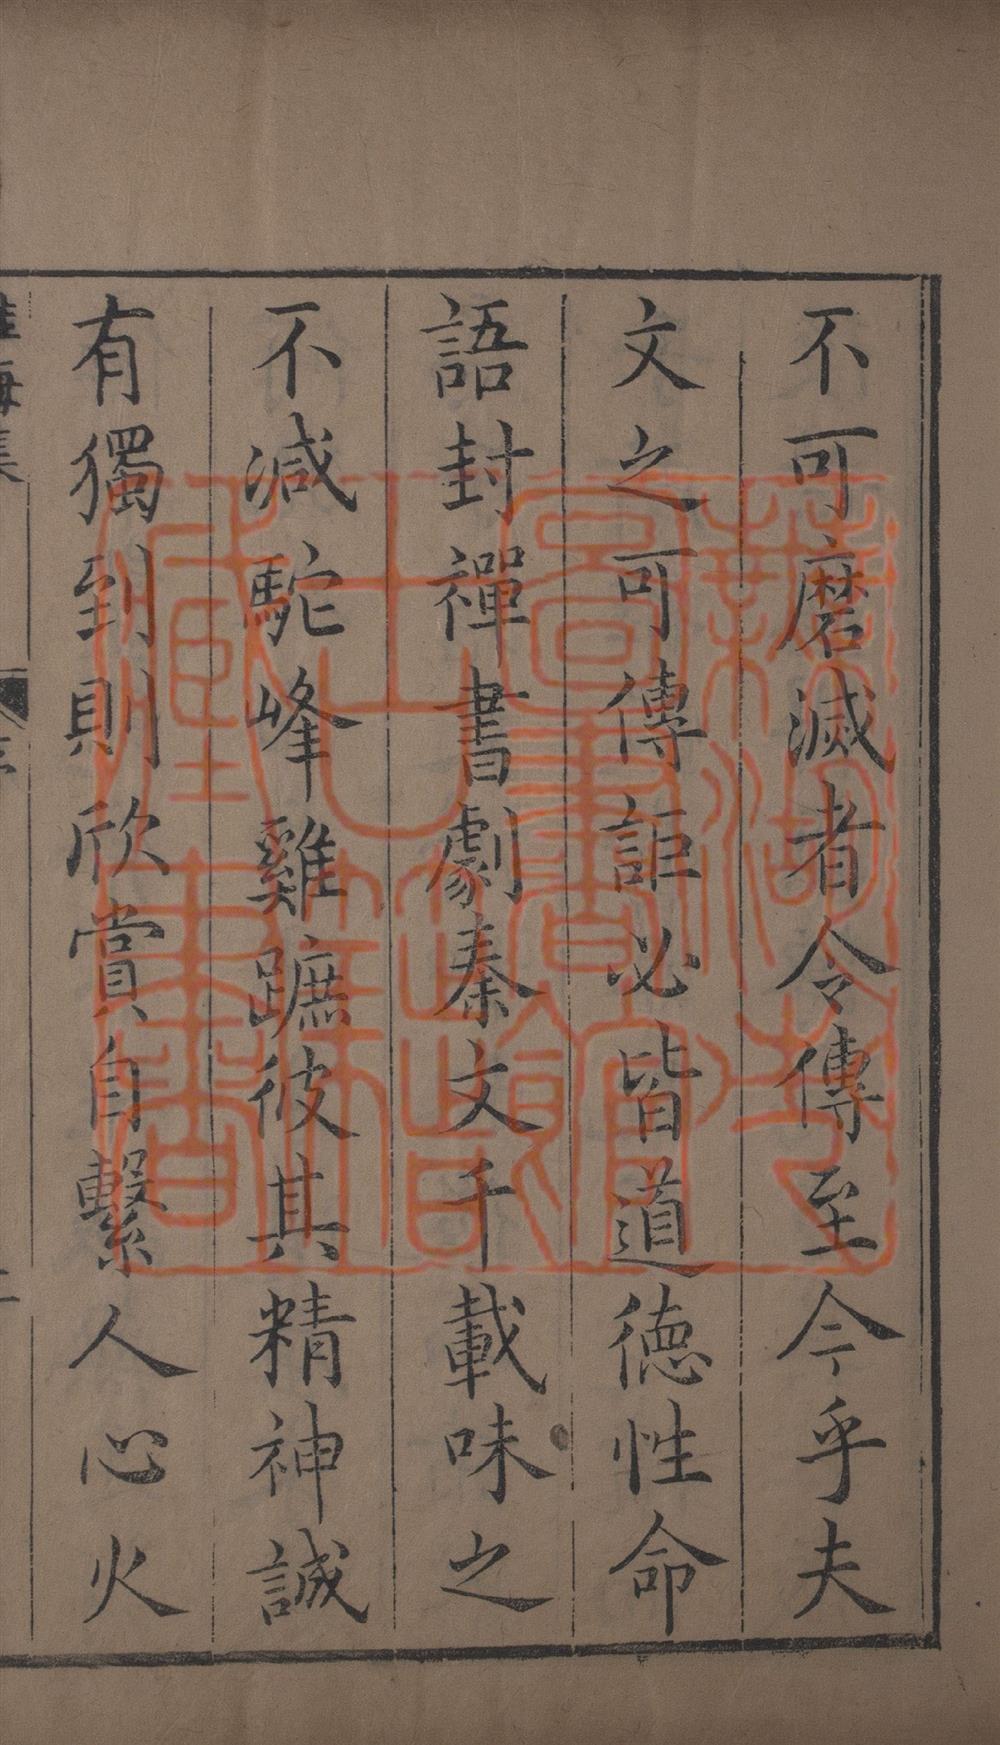 不可磨滅者令傳至今乎夫
文之可傳詎必皆道德性命
語封禪書劇秦文千載味之
不減駝峰雞蹠彼其精神誠
有獨到則欣賞自繫人心火